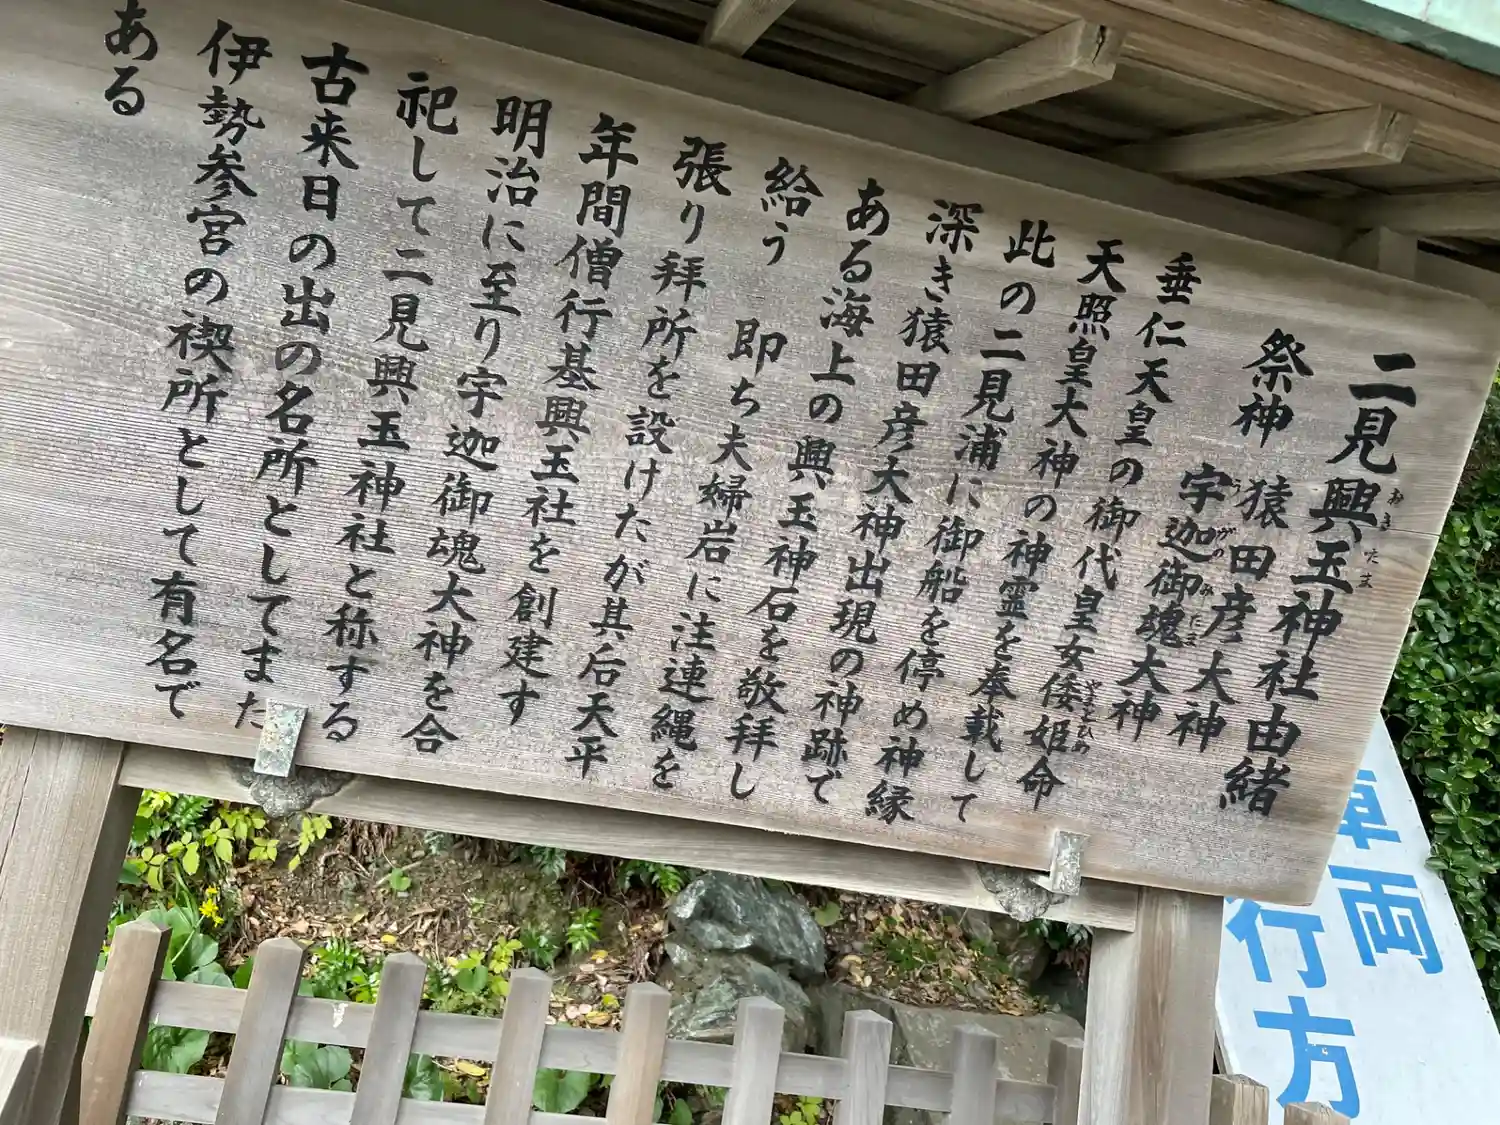 二見興玉神社由緒
祭神 猿田彦大神
宇迦御魂大神
垂仁天皇の御代皇女倭姫命
天照皇大神の神霊を奉載して
此の二見浦に御船を停め神縁
深き猿田彦大神出現の神跡で
ある海上の興玉神石を敬拝し
給う 即ち夫婦岩に注連縄を
張り拝所を設けたが其后天平
年間僧行基興玉社を創建す
明治に至り宇迦御魂大神を合
祀して二見興玉神社と称する
古来日の出の名所としてまた
伊勢参宮の禊所として有名で
ある
おき
たま
うがのみたま
やまとひめ
車両
行方